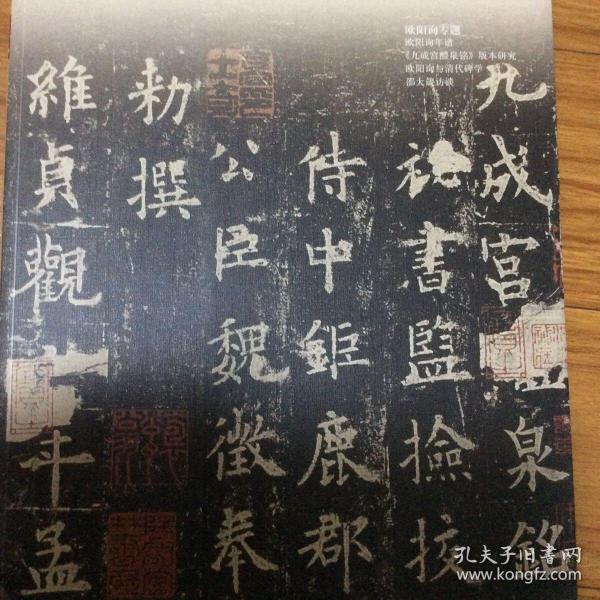 欧阳询专题
欧阳询年谱
《九成宫醴泉铭》版本研究
欧阳询与清代碑学
邵大箴访谈
九成宮泉銘
秘書監撿挍
侍中鉅鹿郡
公臣魏徵奉
勅撰
維貞觀年孟
孔夫子旧书网
www.kongfz.com